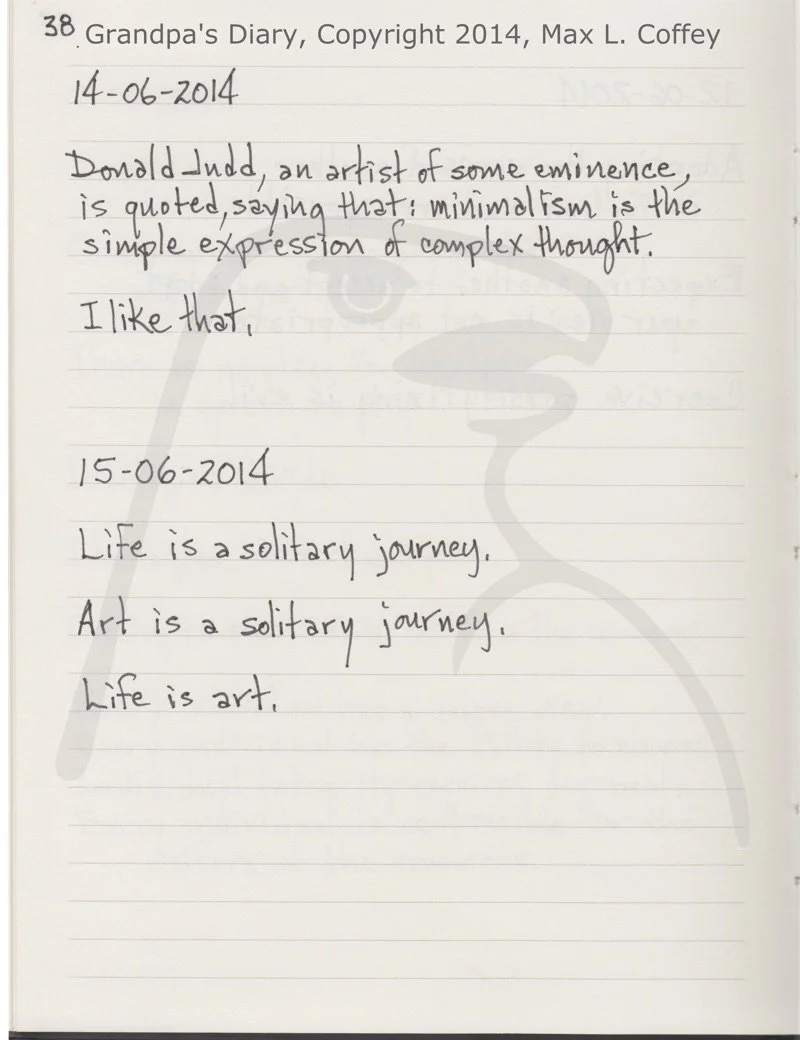 38. Grandpa's Diary, Copyright 2014, Max L. Coffey
14-06-2014
Donald Judd, an artist of some eminence,
is quoted, saying that: minimalism is the
simple expression of complex thought.
I like that.
15-06-2014
Life is a solitary journey.
Art is a solitary journey.
Life is art.